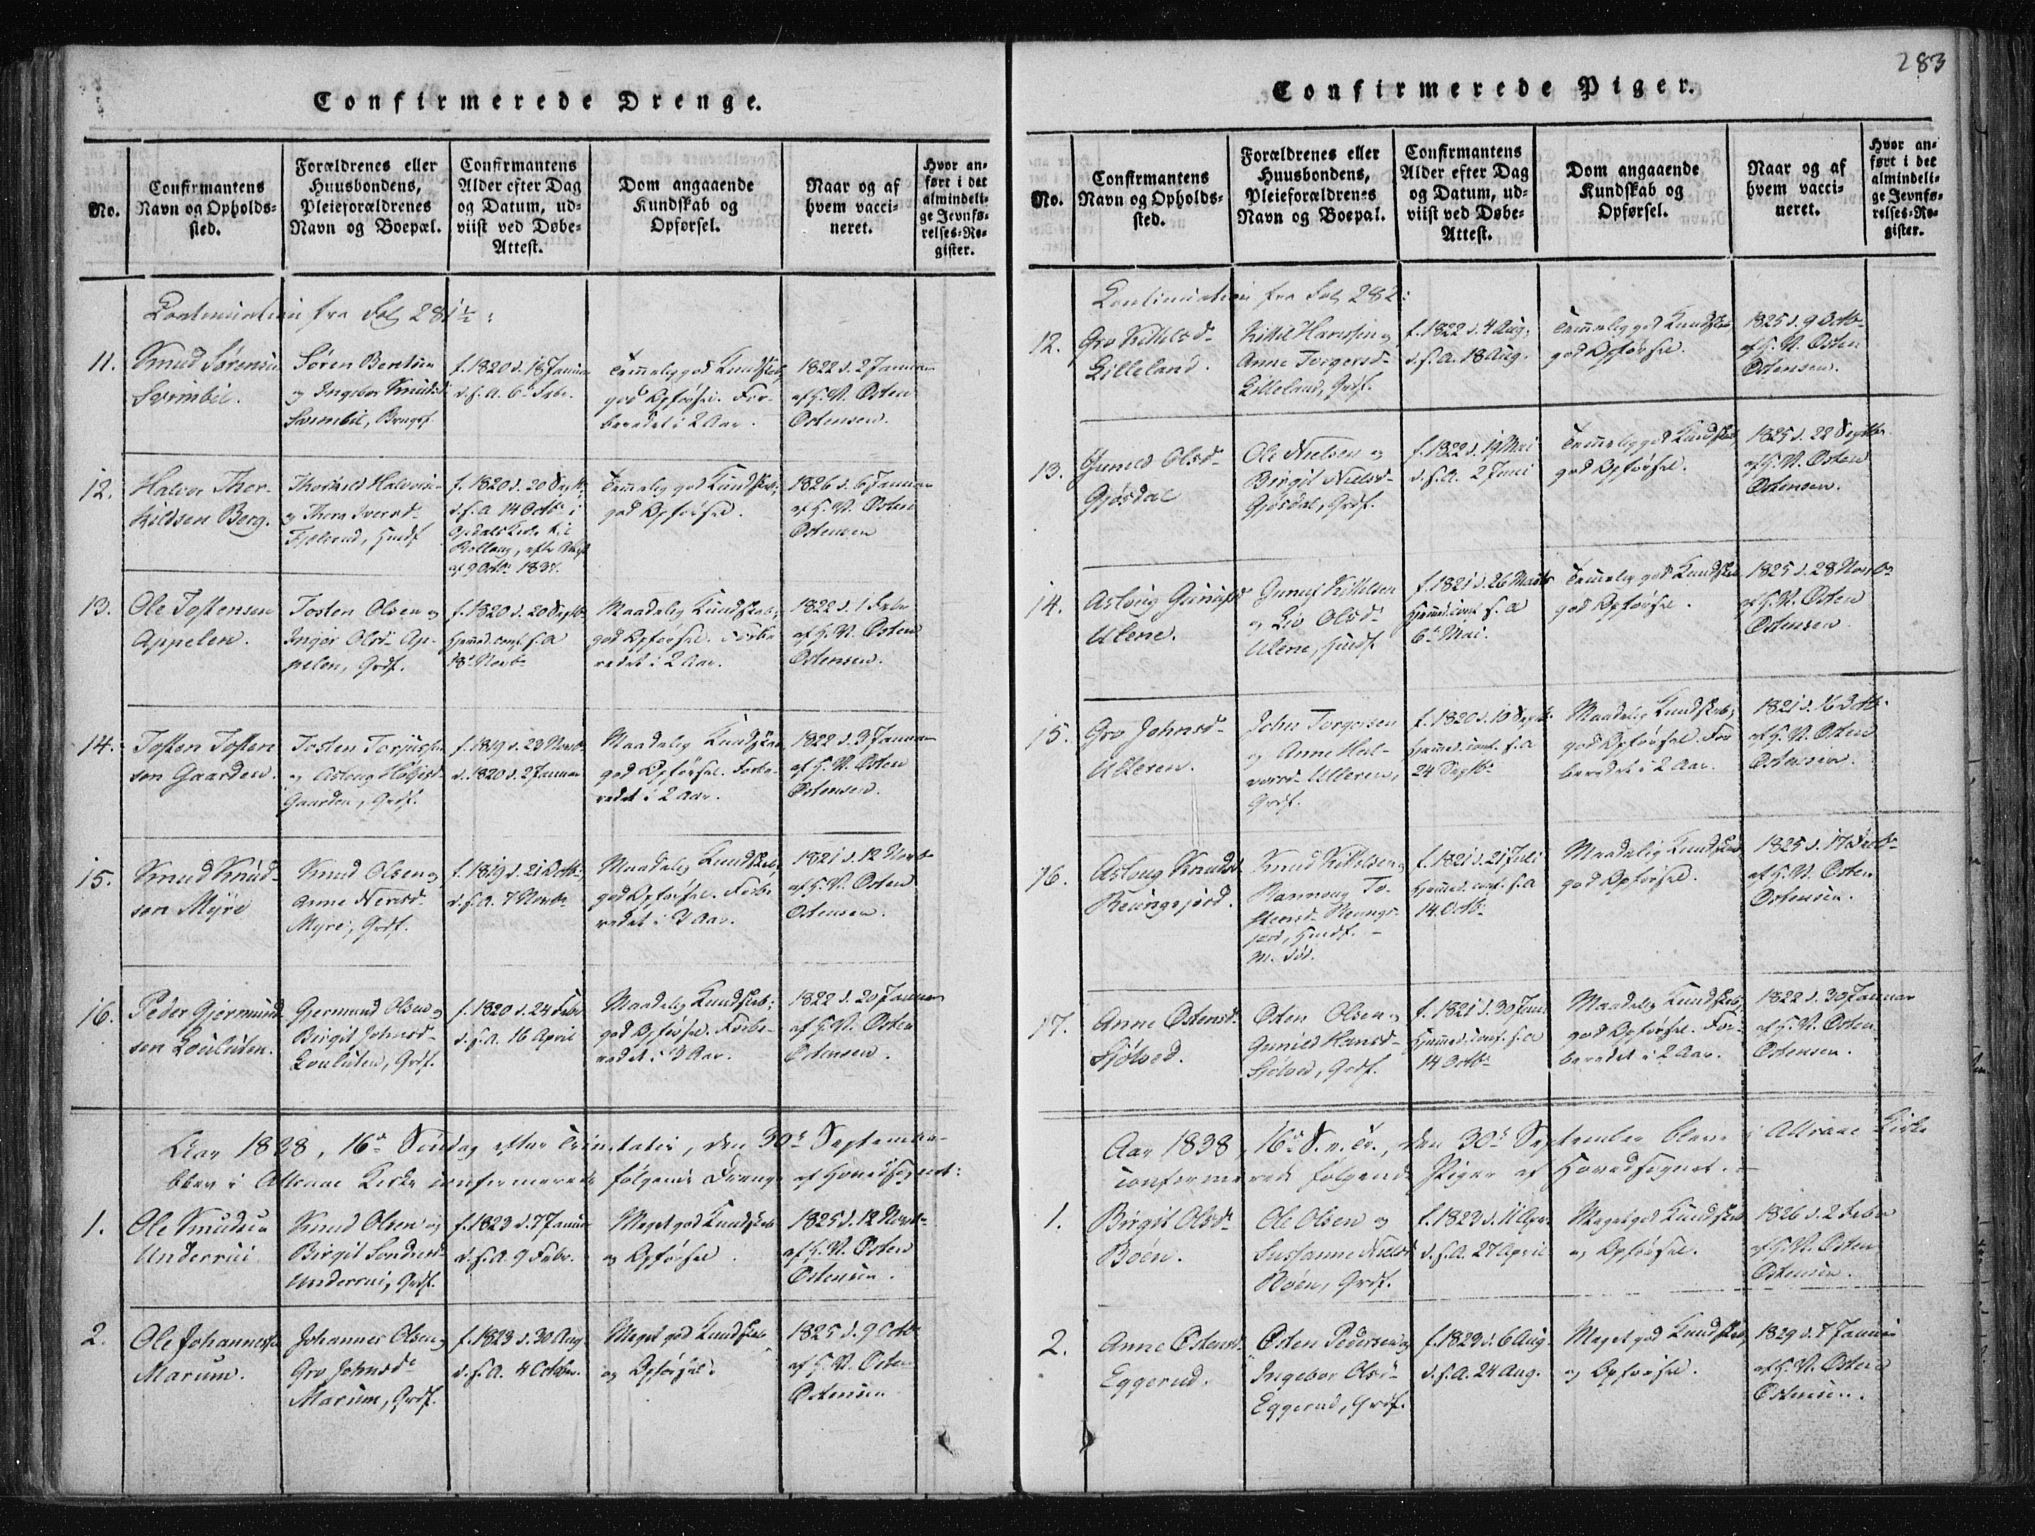 283
Confirmerede Drenge.
No.
Confirmantens
Navn og Opholds-
sted.
Forældrenes eller
Huusbondens,
Pleieforældrenes
Navn og Boepæl.
Confirmantens
Alder efter Dag
og Datum, ud-
viist ved Døbe-
Attest.
Dom angaaende
Kundskab og
Opførsel.
Naar og af
hvem vacci-
neret.
Hvor an-
ført i det
almindeli-
ge Jevnfø-
relses-Re-
gister.
Continuation fra Fol 281½:
11.
Knud Sørensen
Sørenbøe.
Søren Bentsen
og Ingebor Knudsd
f. 1820 d. 18 Januar
d. s. A. 6t Febr.
Temmelig god Kundskab,
god Opførsel. For-
beredet i 2 Aar.
1822 d. 2 Januar
af H. N. Østen
Østensen.
12.
Halvor Thor-
kildsen Berg.
Thorkild Halvorsen
og Thora Iversd.
f. 1820 d. 20 Septb.
d. s. A 14 Octb. i
Rollaug, efter Attest
af 9 Octb. 1837.
Temmelig god Kundskab,
god Opførsel.
1826 d. 6 Januar
af H. N. Østen
Østensen
13.
Ole Tostensen
Appelen.
Tosten Olsen og
Ingør Olsd. Ap-
pelen, Grdf.
f. 1820 d. 20 Septb.
hjemmed. conf. s. A
18t Novb.
Maadelig Kundskab,
god Opførsel. Forbe-
redet i 2 Aar.
1822 d. 1 Febr
af H. N. Østen
Østensen.
14.
Tosten Tosten
sen Gaarden.
Tosten Torjusen
og Aslaug Holjesd
Gaarden, Grdf.
f. 1819 d. 23 Novb.
d. 1820 d. 2 Januar
Maadelig Kundskab
god Opførsel. Forbe-
redet i 2 Aar.
1822 d. 3 Januar
af H. N. Østen
Østensen.
15.
Knud Knud-
sen Myre
Knud Olsen og
Anne
Myre, Grdf.
f. 1819 d. 21 Octb.
d. s. A. 7 Novb.
Maadelig Kundskab,
god Opførsel. Forbe-
redet i 3 Aar.
1821 d. 12 Novb
af H. N. Østen
Østensen.
16.
Peder Gjermund-
sen
Gjermund Olsen og
Birgit Johnsd.
f. 1820 d. 24 Febr
d. s. A. 16 April
Maadelig Kundskab;
god Opførsel. Forbe-
redet i 3 Aar.
1822 d. 20 Januar
af H. N. Østen
Østensen.
Aar 1838, 16de Søndag efter Trinitatis, den 30t September
blev i Attraae Kirke confirmerede følgende Drenge af Hovedsognet:
1.
Ole Knudsen
Underrui
Knud Olsen og
Birgit Sondresd
Underrui, Grdf.
f. 1823 d. 7 Januar
d. s. A. 9 Febr.
Meget god Kundskab
og Opførsel.
1825 d. 12 Novb.
af H. N. Østen
Østensen.
2.
Ole Johannesen
Marum.
Johannes Olsen og
Gro Johnsdr
Marum, Grdf.
f. 1823 d. 30 Aug
d. s. A. 4 October.
Meget god Kundskab
og Opførsel.
1825 d. 9 Octb.
af H. N. Østen
Østensen
Confirmerede Piger.
No.
Confirmantens
Navn og Opholds-
sted.
Forældrenes eller
Huusbondens,
Pleieforældrenes
Navn og Boepæl.
Confirmantens
Alder efter Dag
og Datum, ud-
viist ved Døbe-
Attest.
Dom angaaende
Kundskab og
Opførsel.
Naar og af
hvem vacci-
neret.
Hvor an-
ført i det
almindeli-
ge Jevnfø-
relses-Re-
gister.
Continuation fra Fol 282:
12.
Gro Kittilsd.
Lilleland.
Kittil Hansen og
Anne Torgersd.
Lilleland, Grdf.
f. 1822 d. 4 Aug.
d. s. A. 18 Aug.
Temmelig god Kundskab
god Opførsel.
1825 d. 9 Octb.
af H. N. Østen
Østensen.
13.
Gunild Olsd.
Gjøsdal
Ole Nielsen og
Birgit Nielsd.
Gjøsdal, Grdf.
f. 1822 d. 19 Mai
d. s. A. 2 Juni
Temmelig god Kundskab,
god Opførsel.
1825 d. 22 Septb.
af H. N. Østen
Østensen.
14.
Aslaug Gunufsd
Ulene.
Gunuf Kittilsen
og Liv Olsd.
Ulene, Huusf.
f. 1821 d. 26 Marts
hjemmed. conf. s. A
6t Mai.
Temmelig god Kundskab
god Opførsel.
1825 d. 28 Novb.
af H. N. Østen
Østensen
15.
Gro Johnsd.
Uleren.
John Torgersen
og Anne Hal-
vorsd. Uleren,
Grdf.
f. 1820 d. 10 Septb.
hjemmed. conf. s. A
24 Septb.
Maadelig Kundskab,
god Opførsel. For
beredet i 2 Aar.
1821 d. 16 Octb.
af H. N. Østen
Østensen.
16.
Aslaug Knudsd.
Reungsjord.
Knud Kittilsen og
Rannoug To-
stensd. Reungs-
jord, Huusf. –
M. død.
f. 1821 d. 21 Juli
hjemmed. conf. s. A
14. Octb.
Maadelig Kundskab
god Opførsel.
1825 d. 17 Febr.
af H. N. Østen
Østensen.
17.
Anne Østensd.
Sjølved.
Østen Olsen og
Gunild Hansd.
Sjølved, Grdf.
f. 1821 d. 30 Juni
hjemmed. conf. s. A
14 Octb.
Maadelig Kundskab,
god Opførsel. For-
beredet i 2 Aar.
1822 d. 30 Januar
af H. N. Østen
Østensen.
Aar 1838, 16de S. e. Tr., den 30t September bleve i Attraae Kirke
confirmerede følgende Piger af Hovedsognet. –
1.
Birgit Olsdr
Boen.
Ole Olsen og
Sussanne Nielsd
Boen, Grdf.
f. 1823 d. 11 Apr.
d. s. A. 27 April
Meget god Kundskab
og Opførsel.
1826 d. 2 Febr
af H. N. Østen
Østensen.
2.
Anne Østensd.
Eggerud.
Østen Pedersen og
Ingebor Olsd.
Eggerud, Grdf.
f. 1823 d. 6 Aug.
d. s. A. 24 Aug.
Meget god Kundskab,
og Opførsel.
1829 d. 7 Januar
af H. N. Østen
Østensen.